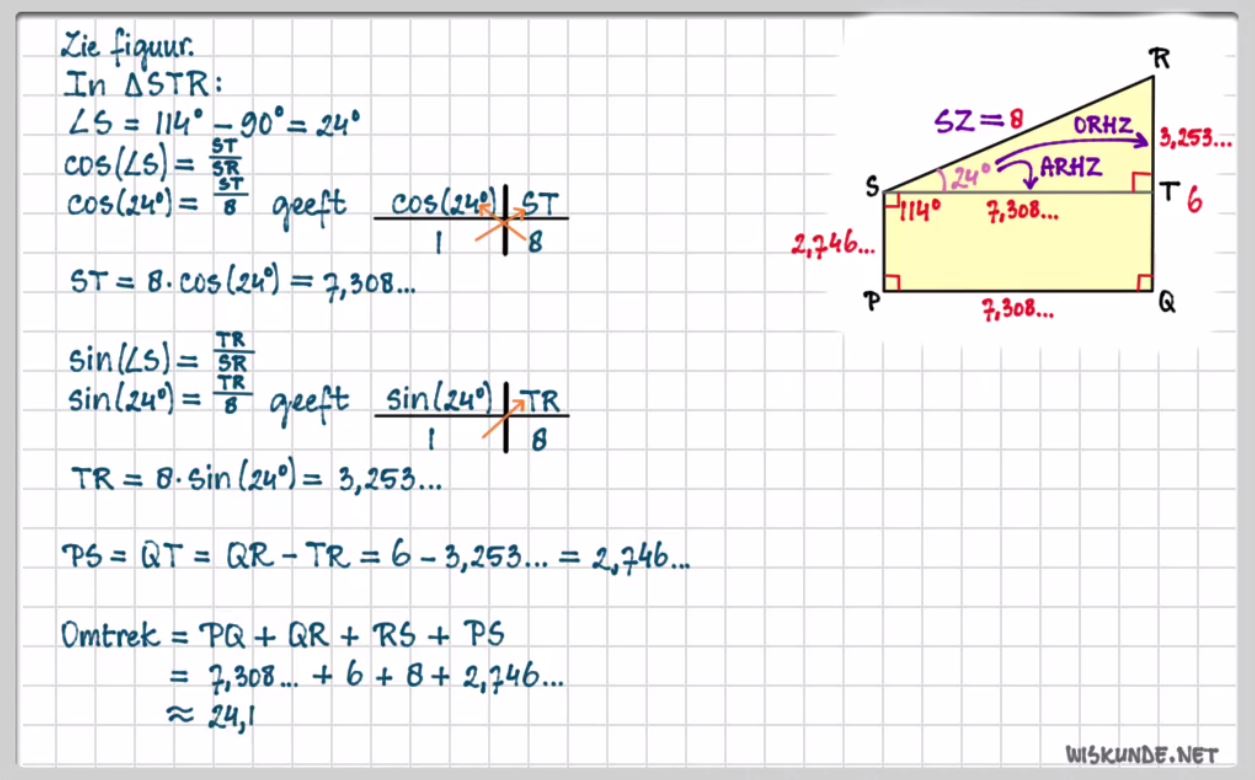 Zie figuur.
In △STR:
∠S = 114° – 90° = 24°
cos(∠S) = ST/SR
cos(24°) = ST/8 geeft
cos(24°) | ST
1 | 8
ST = 8 · cos(24°) = 7,308...
sin(∠S) = TR/SR
sin(24°) = TR/8 geeft
sin(24°) | TR
1 | 8
TR = 8 · sin(24°) = 3,253...
PS = QT = QR – TR = 6 – 3,253... = 2,746...
Omtrek = PQ + QR + RS + PS
= 7,308... + 6 + 8 + 2,746...
≈ 24,1
R
SZ = 8
ORHZ
3,253...
ARHZ
24°
S
T
6
114°
7,308...
2,746...
P
Q
7,308...
WISKUNDE.NET